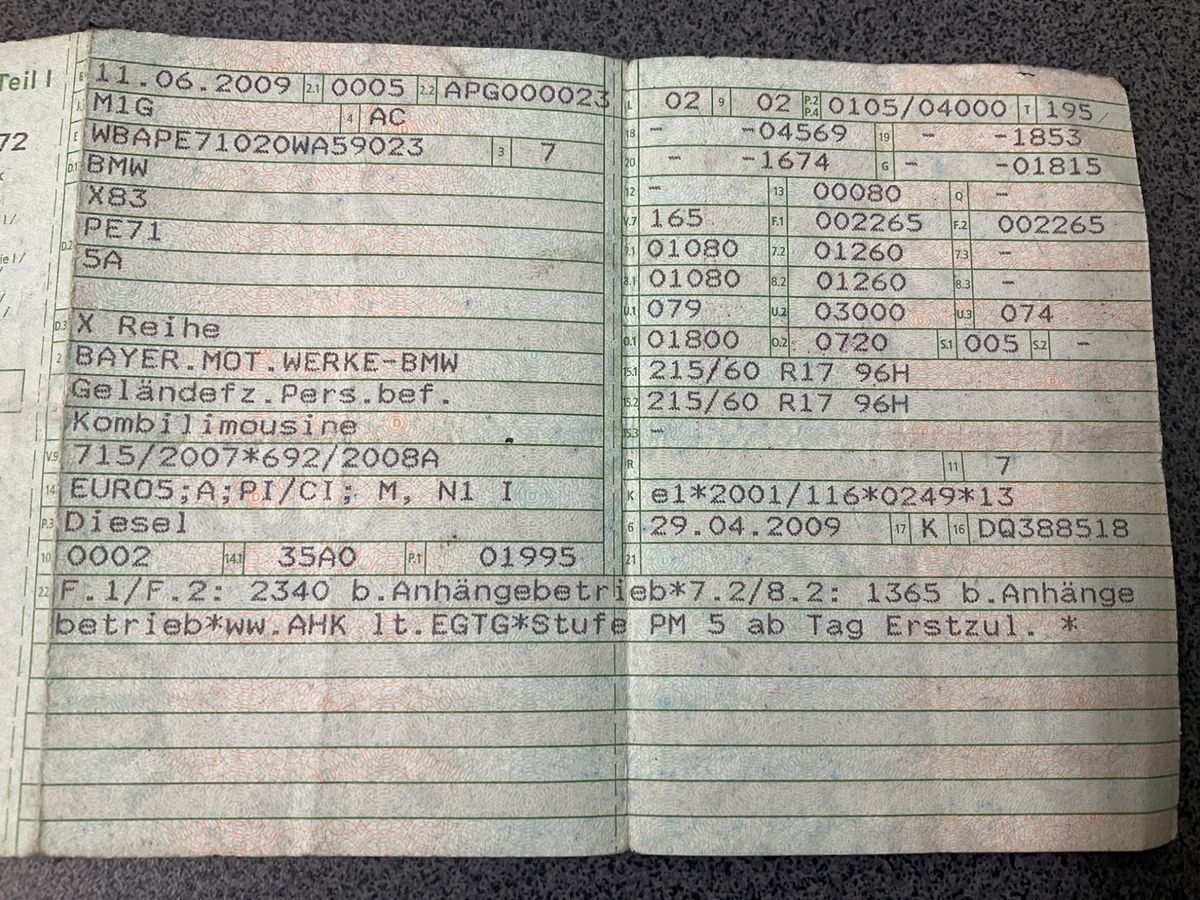 Teil I
72
B 11.06.2009 2.1 0005 2.2 APG000023
J M1G 4 AC
E WBAPE71020WA59023 3 7
D.1 BMW
X83
D.2 PE71
5A
D.3 X Reihe
2 BAYER.MOT.WERKE-BMW
Geländefz.Pers.bef.
Kombilimousine
V.9 715/2007*692/2008A
14 EURO5;A;PI/CI; M, N1 I
P.3 Diesel
10 0002 14.1 35A0 P.1 01995
L 02 9 02 P.2 P.4 0105/04000 T 195
18 - -04569 19 - -1853
20 - -1674 G - -01815
12 - 13 00080 Q -
V.7 165 F.1 002265 F.2 002265
7.1 01080 7.2 01260 7.3 -
8.1 01080 8.2 01260 8.3 -
U.1 079 U.2 03000 U.3 074
O.1 01800 O.2 0720 S.1 005 S.2 -
15.1 215/60 R17 96H
15.2 215/60 R17 96H
15.3 -
R 11 7
K e1*2001/116*0249*13
6 29.04.2009 17 K 16 DQ388518
21
22 F.1/F.2: 2340 b.Anhängebetrieb*7.2/8.2: 1365 b.Anhänge
betrieb*ww.AHK lt.EGTG*Stufe PM 5 ab Tag Erstzul. *